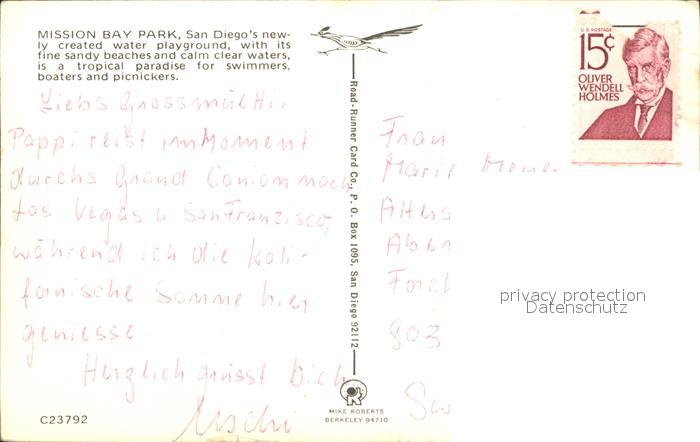 MISSION BAY PARK, San Diego's new-
ly created water playground, with its
fine sandy beaches and calm clear waters,
is a tropical paradise for swimmers,
boaters and picnickers.
Liebs Grossmuetti,
Pappi reist im Moment
durchs Grand Canion nach
Las Vegas u SanFranzisco,
während ich die Kali-
fornische Sonne hier
geniesse.
Herzlich grüsst Dich
Uschi
C23792
Road-Runner Card Co., P. O. Box 1095, San Diego 92112
MIKE ROBERTS
BERKELEY 94710
U.S. POSTAGE
15¢
OLIVER
WENDELL
HOLMES
Frau
Marie
Alters
Aben
Forch
803
Sw
privacy protection
Datenschutz